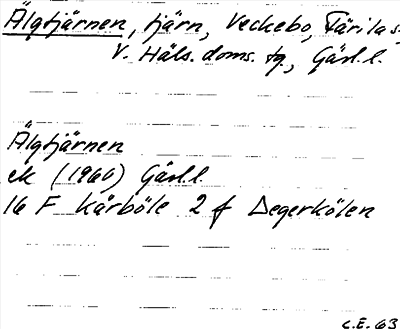 Älgtjärnen, tjärn, Veckebo, Färila s.
V. Häls. doms. tg, Gävl. l.
Älgtjärnen
ek (1960) Gävl. l.
16 F Kårböle 2 f Degerkölen
C.E. 63